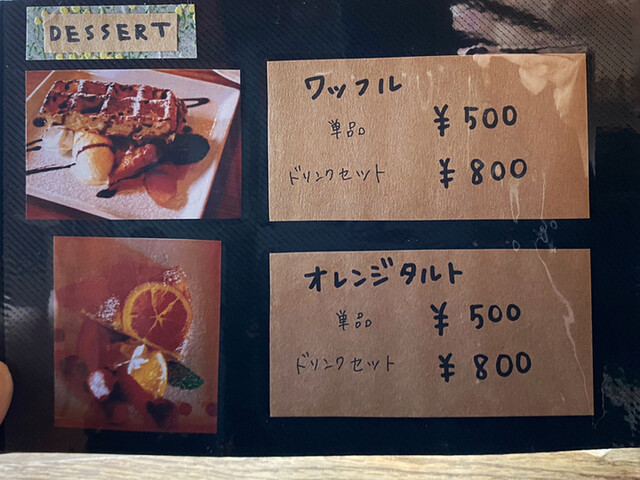 DESSERT
ワッフル
単品 ¥500
ドリンクセット ¥800
オレンジタルト
単品 ¥500
ドリンクセット ¥800